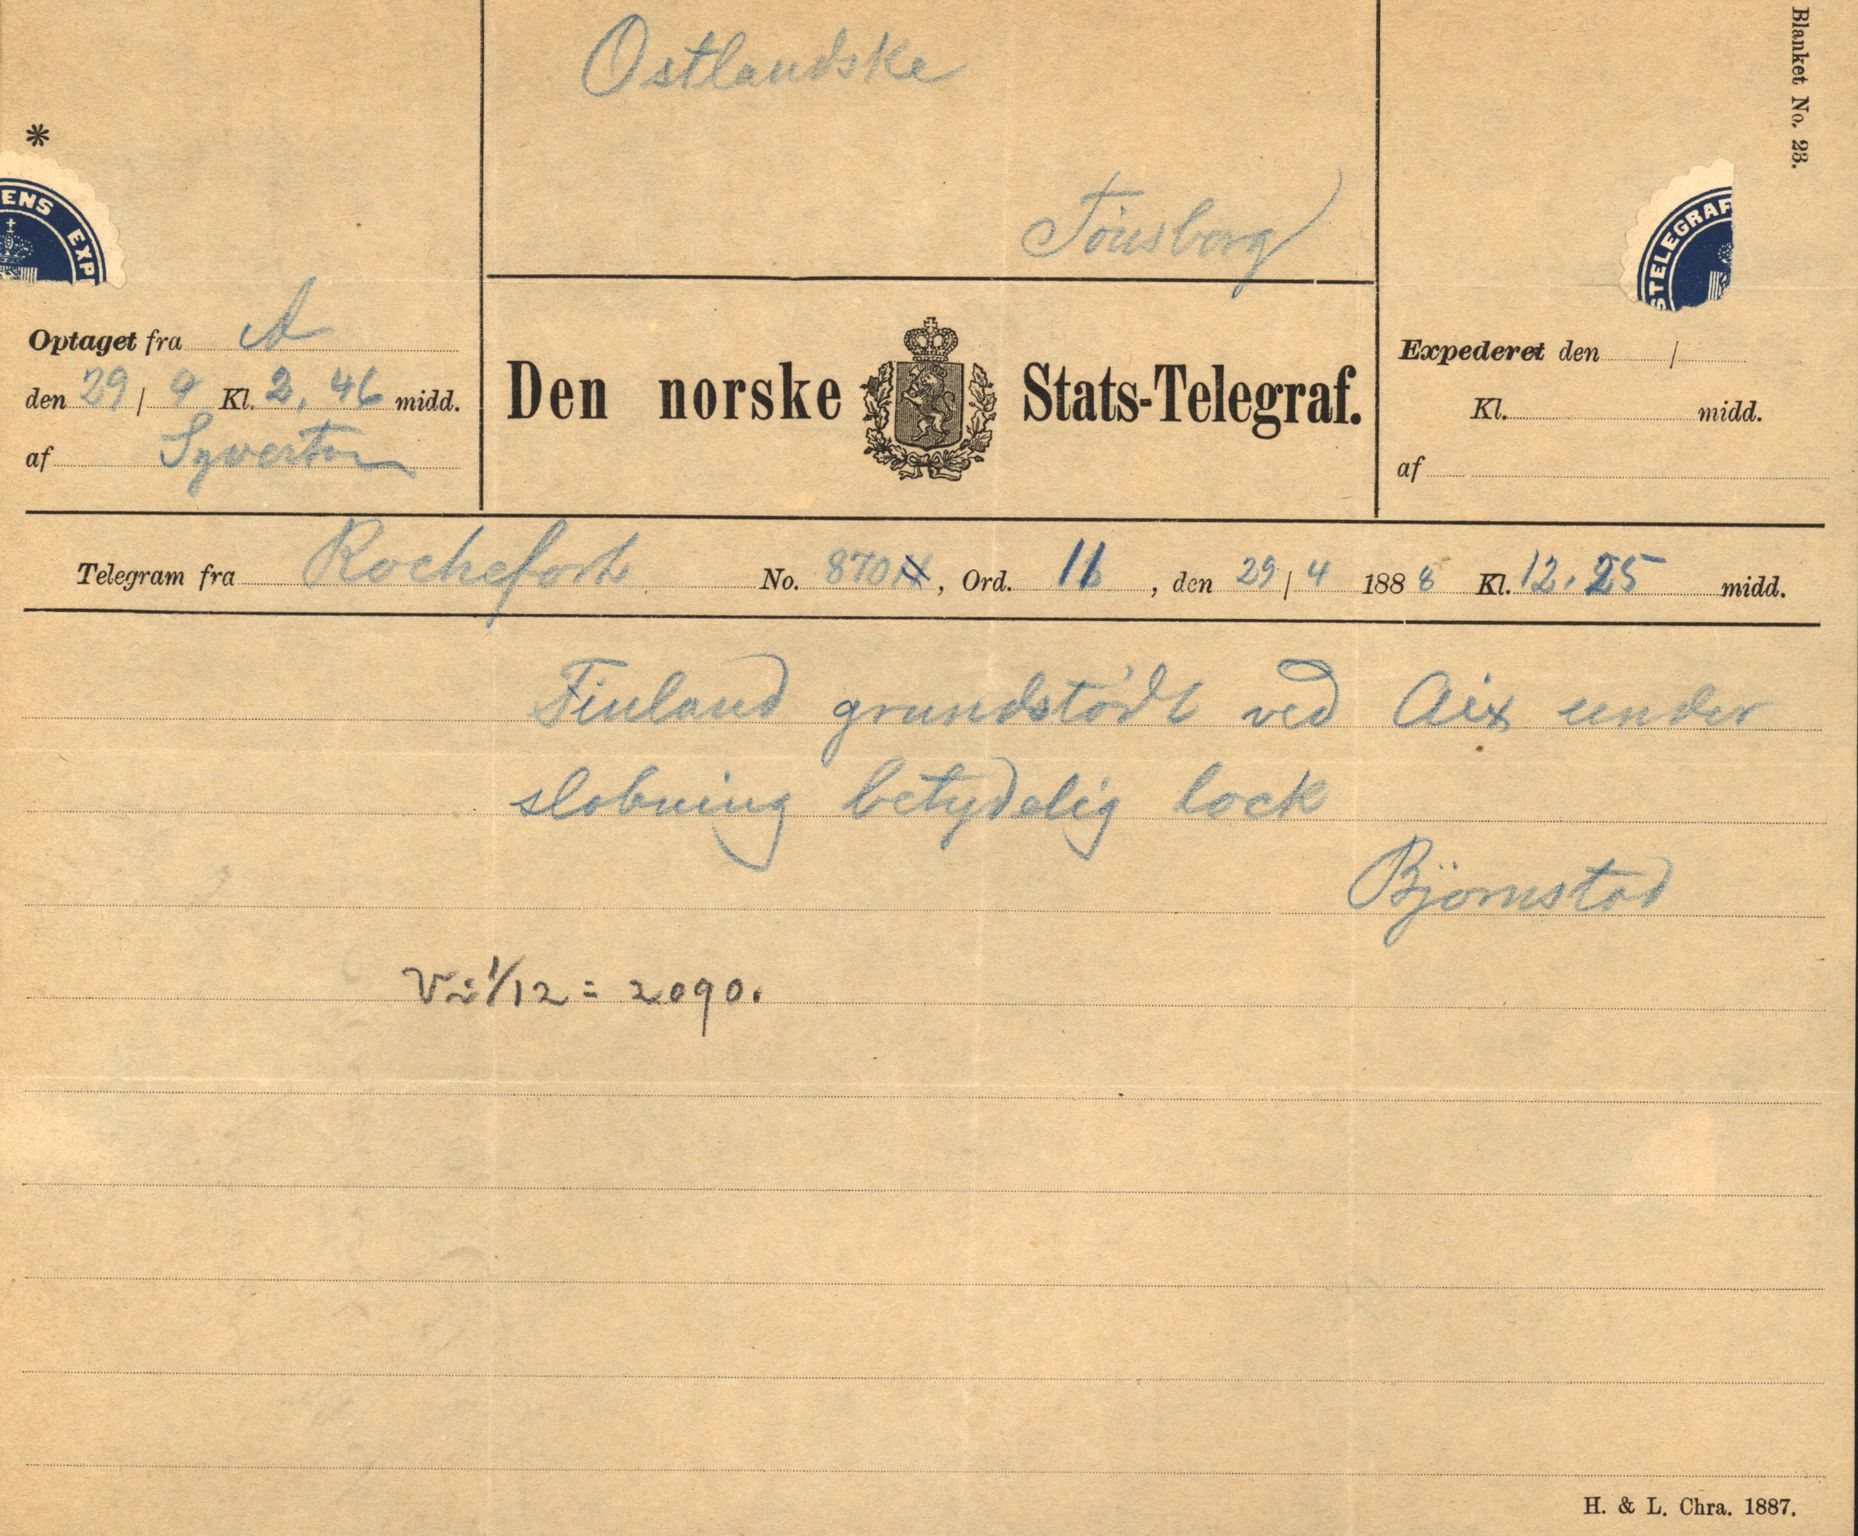 Blanket No. 23.
Ostlandske
*
Tönsberg
ENS EXP
STELEGRAF
Optaget fra A
den 29 / 4 Kl. 2,46 midd.
af Syverton
Den norske Stats-Telegraf.
Expederet den /
Kl. midd.
af
Telegram fra Rochefort No. 870, Ord. 11, den 29 / 4 1888 Kl. 12.25 midd.
Finland grundstödt ved Aix under
slobning betydelig lock
Björnstad
1/12 = 2090.
H. & L. Chra. 1887.